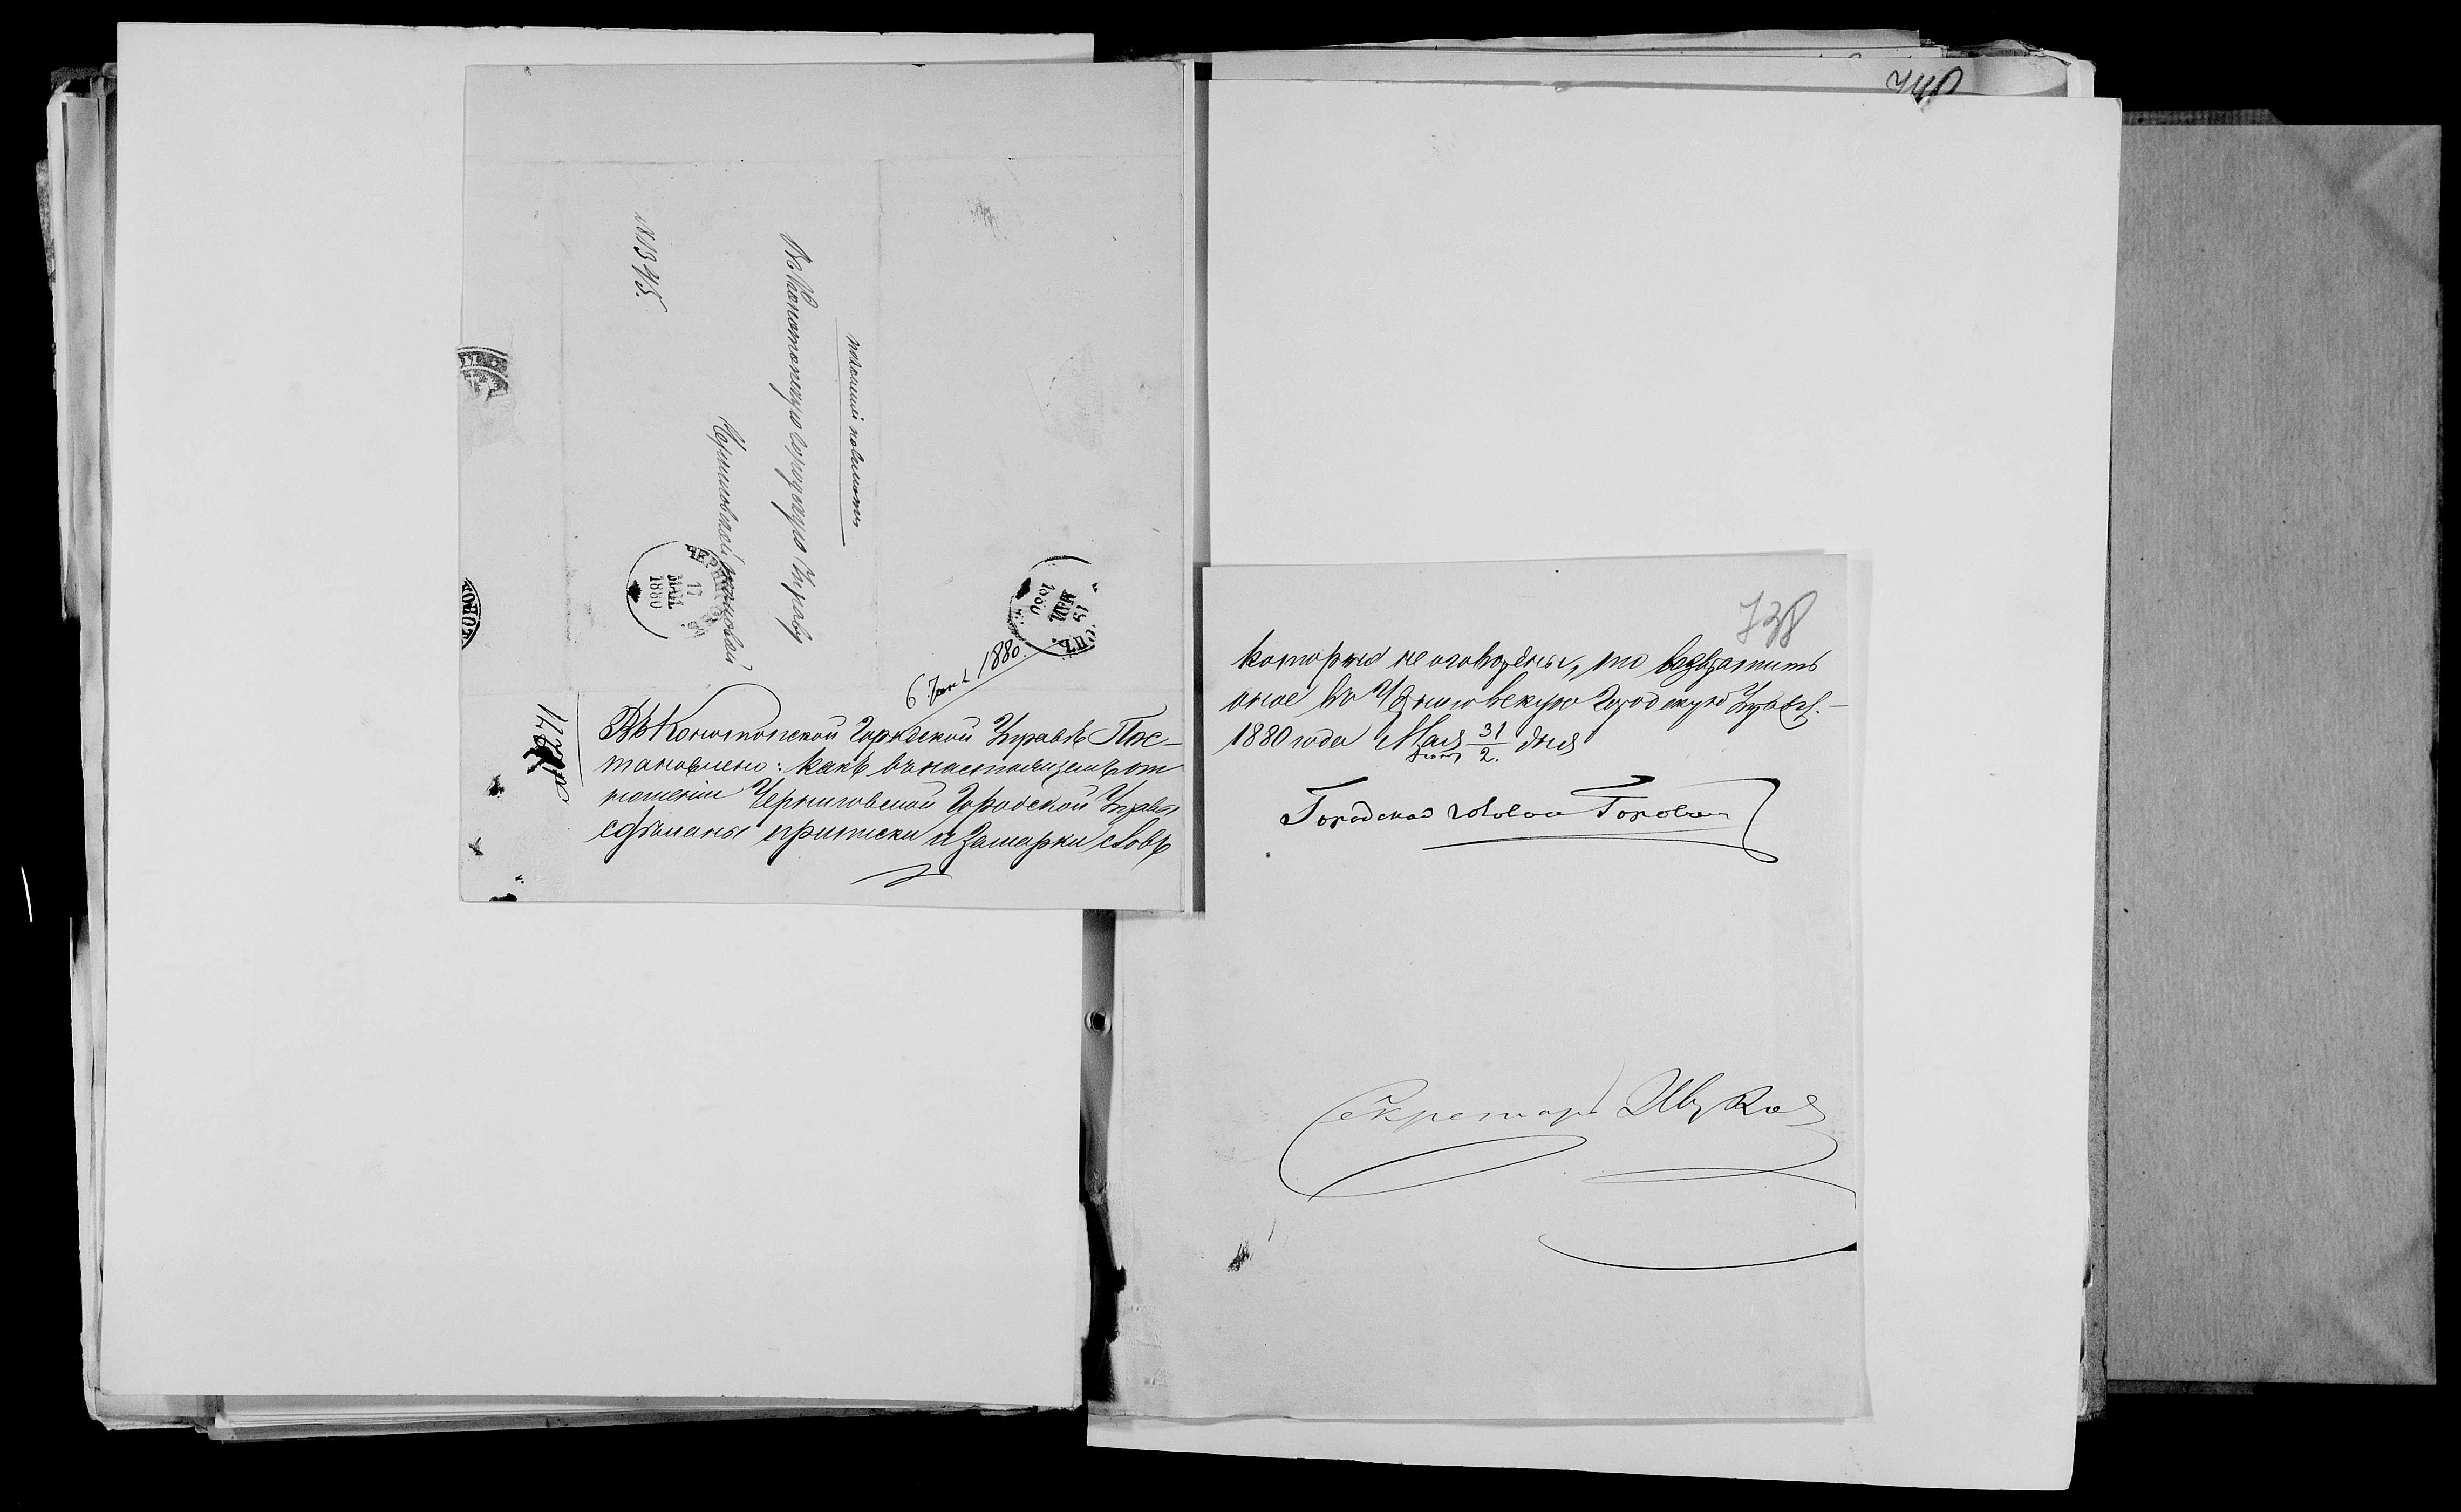 740
№ 8345.
воинской повинности
Въ Конотопскую городскую Управу
Черниговской городской
ЧЕРНИГОВЪ
17
МАЯ
1880
15
МАЯ
1880
6 Іюня 1880
Въ Конотопской Городской Управѣ Пос-
тановлено: какъ въ настоящемъ от
ношеніи Черниговской Городской Управы
сдѣланы приписки и замарки словъ
738
которыя не оговорены, то возвратить
оное въ Черниговскую Городскую Управу.—
1880 года Мая 31/2 дня
Іюня
Городской Голова
Секретарь